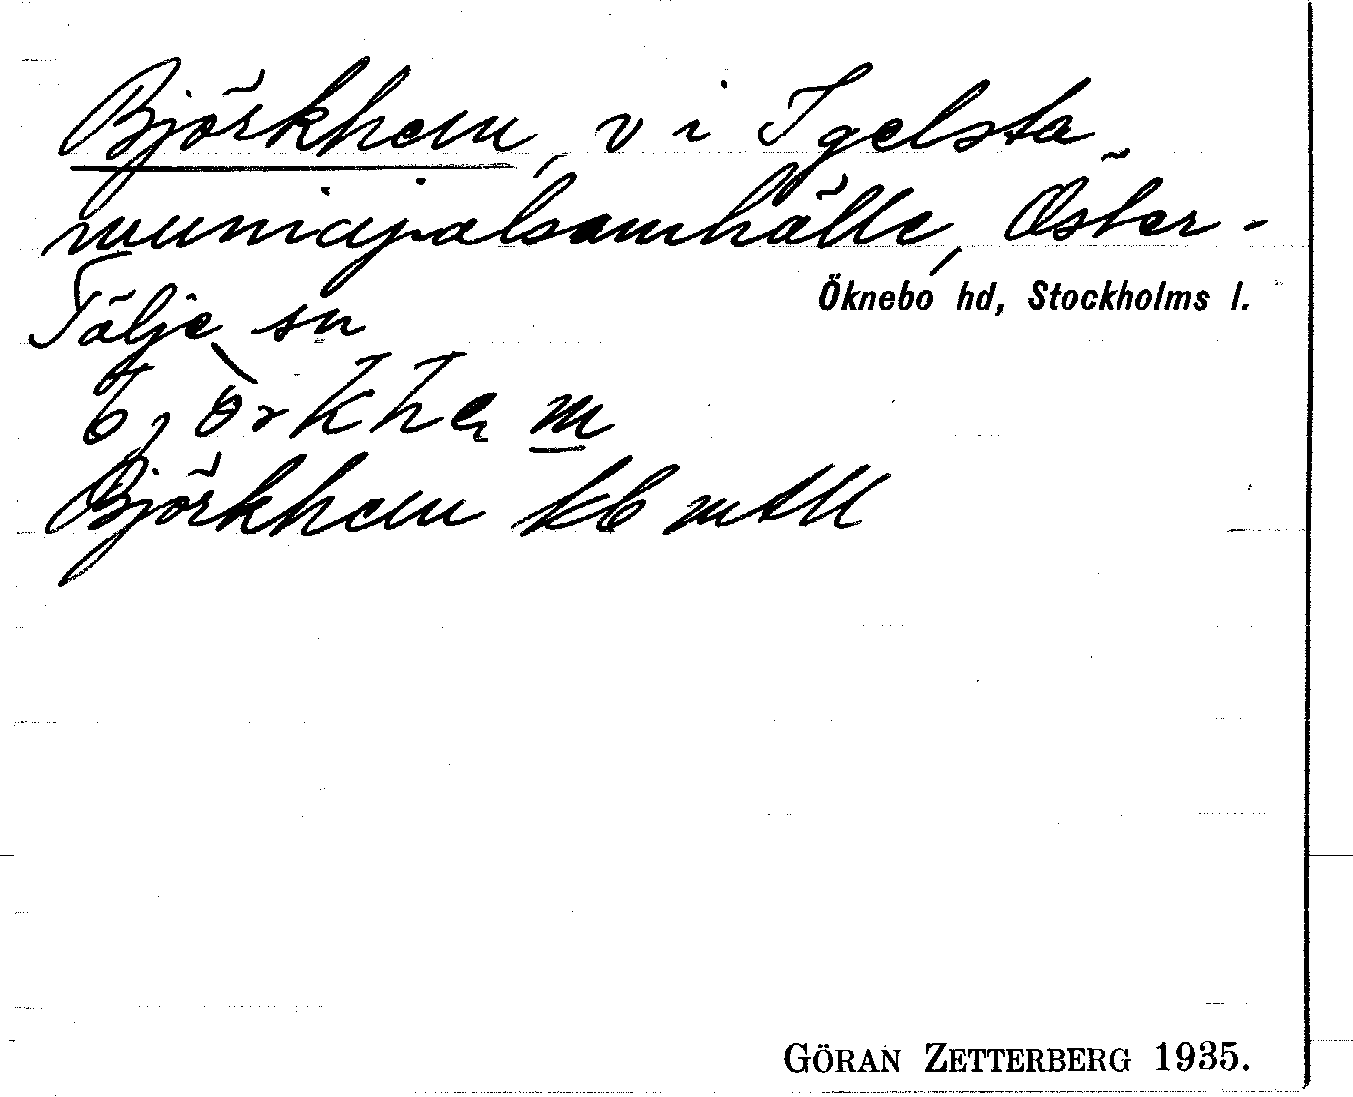 Björkhem, v i Igelsta
municipalsamhälle, Öster-
Tälje sn
Öknebo hd, Stockholms l.
bjòrkhem
Björkhem kb mtll
GÖRAN ZETTERBERG 1935.